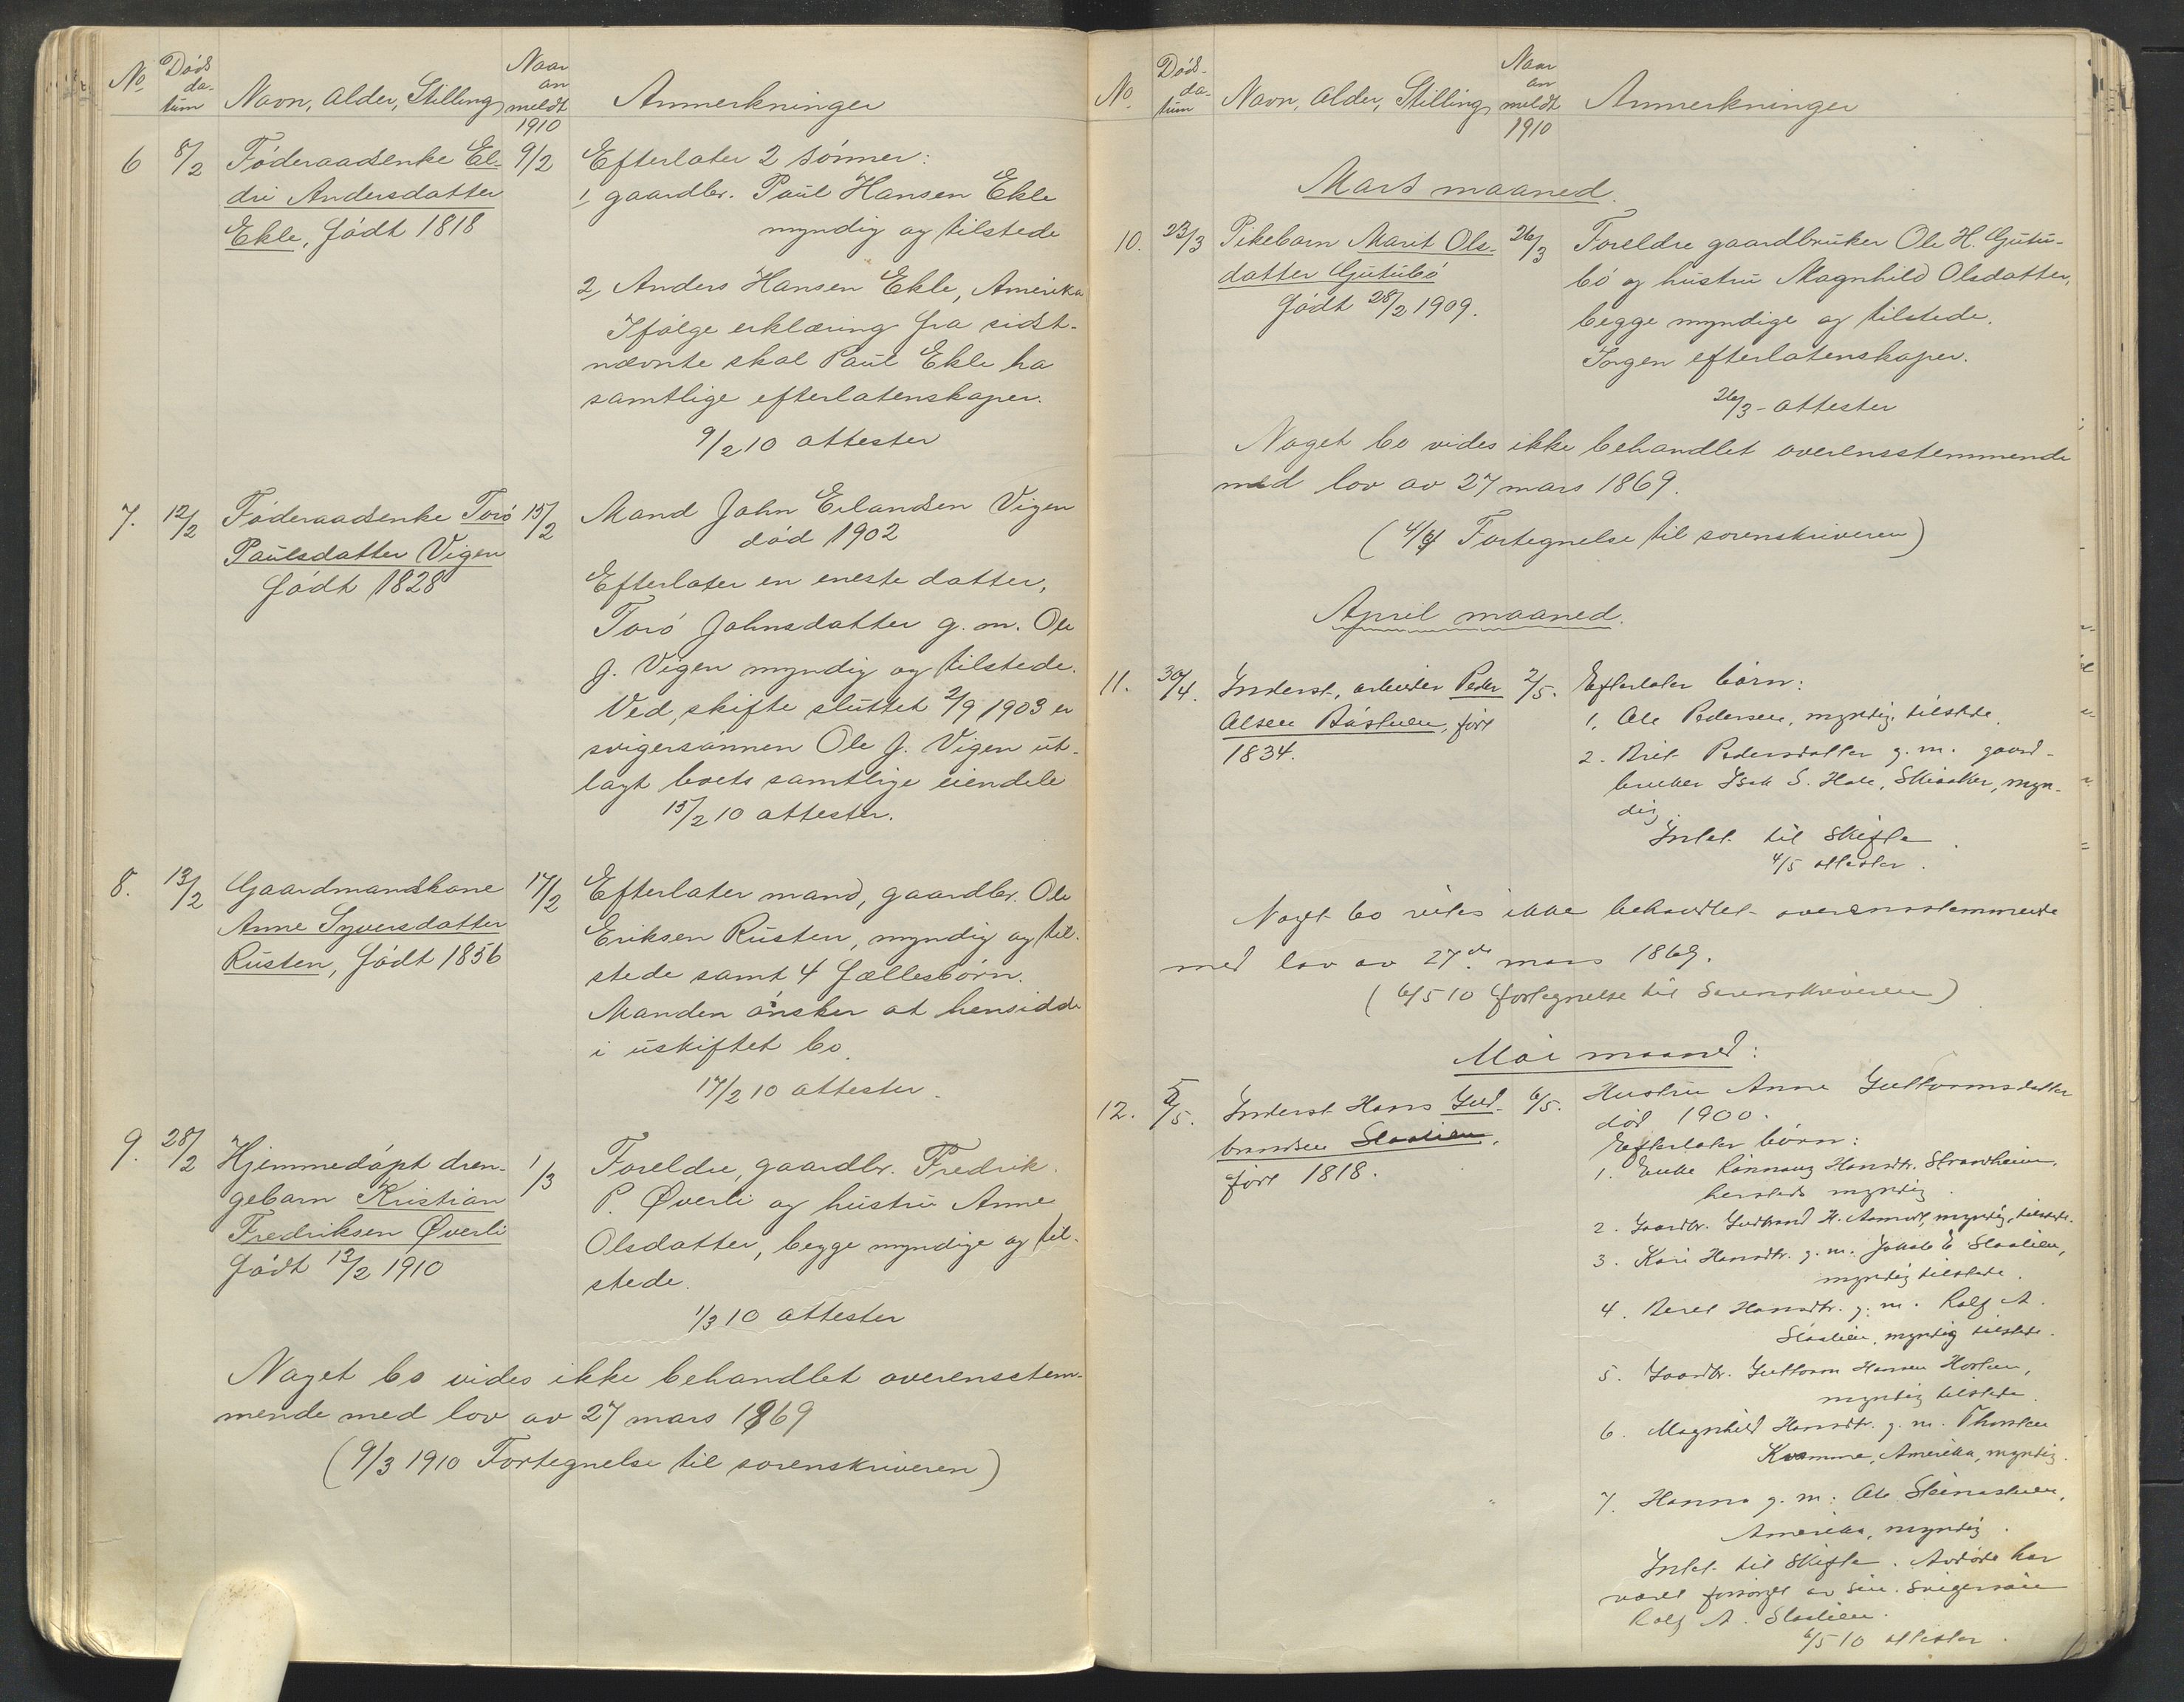 No
Döds
da-
tum
Navn, alder, Stilling
Naar
an
meldt
1910
Anmerkninger
6
8/2
Föderaadsenke El-
dri Andersdatter
Ekle, födt 1818
9/2
Efterlater 2 sönner:
1, gaardbr. Paul Hansen Ekle
myndig og tilstede
2, Anders Hansen Ekle, Amerika
Ifölge erklæring fra sidst-
nævnte skal Paul Ekle ha
samtlige efterlatenskaper.
9/2 10 attester
7.
12/2
Föderaadsenke Torö
Paulsdatter Vigen
födt 1828
15/2
Mand John Erlandsen Vigen
död 1902
Efterlater en eneste datter,
Torö Johnsdatter g. m. Ole
J. Vigen myndig og tilstede.
Ved skifte sluttet 2/9 1903 er
svigersönnen Ole J. Vigen ut-
lagt boets samtlige eiendele
15/2 10 attester.
8.
13/2
Gaardmandskone
Anne Syversdatter
Rusten, födt 1856
17/2
Efterlater mand, gaardbr. Ole
Eriksen Rusten, myndig og til-
stede samt 4 fællesbörn.
Manden önsker at hensidde
i uskiftet bo.
17/2 10 attester.
9.
28/2
Hjemmedöpt dren-
gebarn Kristian
Fredriksen Øverli
födt 13/2 1910
1/3
Foreldre, gaardbr. Fredrik
P. Øverli og hustru Anne
Olsdatter, begge myndige og til-
stede.
1/3 10 attester
Noget bo vides ikke behandlet overensstem-
mende med lov av 27 mars 1869
(9/3 1910 Fortegnelse til sorenskriveren)
No.
Död-
da-
tum
Navn, alder, Stilling
Naar
an
meldt
1910
Anmerkninger
Mars maaned.
10.
23/3
Pikebarn Marit Ols-
datter Gutubö
födt 28/2 1909.
26/3
Foreldre gaardbruker Ole H. Gutu-
bö og hustru Magnhild Olsdatter,
begge myndige og tilstede.
Ingen efterlatenskaper.
26/3 - attester
Noget bo vides ikke behandlet overensstemmende
med lov av 27 mars 1869.
(4/4 Fortegnelse til sorenskriveren)
April maaned.
11.
30/4.
Inderst, arbeider Peder
Olsen Båstuen, født
1834.
2/5.
Efterlater börn:
1. Ole Pedersen, myndig, tilstede.
2. Brit Pedersdatter g. m. gaard-
bruker Isak S. Hole, Skiaaker, myn-
dig.
Intet til skifte.
4/5 attester.
Noget bo vites ikke behandlet overensstemmende
med lov av 27de mars 1869.
(6/5 10 fortegnelse til Sorenskriveren)
Mai maaned:
12.
5/5.
Inderst Hans Gud-
brandsen Slaalien,
født 1818.
6/5.
Hustru Anne Guttormsdatter
død 1900.
Efterlater børn:
1. Enke Rönnaug Hansdtr. Strandheim,
hersteds myndig.
2. Gaardbr. Gudbrand H. myndig, tilstede.
3. Kari Hansdtr. g. m. Jakob E Slaalien,
myndig tilstede.
4. Beret Hansdtr. g. m. Rolf A.
Slaalien, myndig tilstede.
5. Gaardbr. Guttorm Hansen
myndig tilstede.
6. Magnhild Hansdtr. g. m. Thorsten
Kvamme, Amerika, myndig.
7. Hanna g. m. Ole Steinastuen,
Amerika, myndig.
Intet til skifte. Avdøde har
været forsørget av sin svigersøn
Rolf A. Slaalien.
6/5 10 attester.